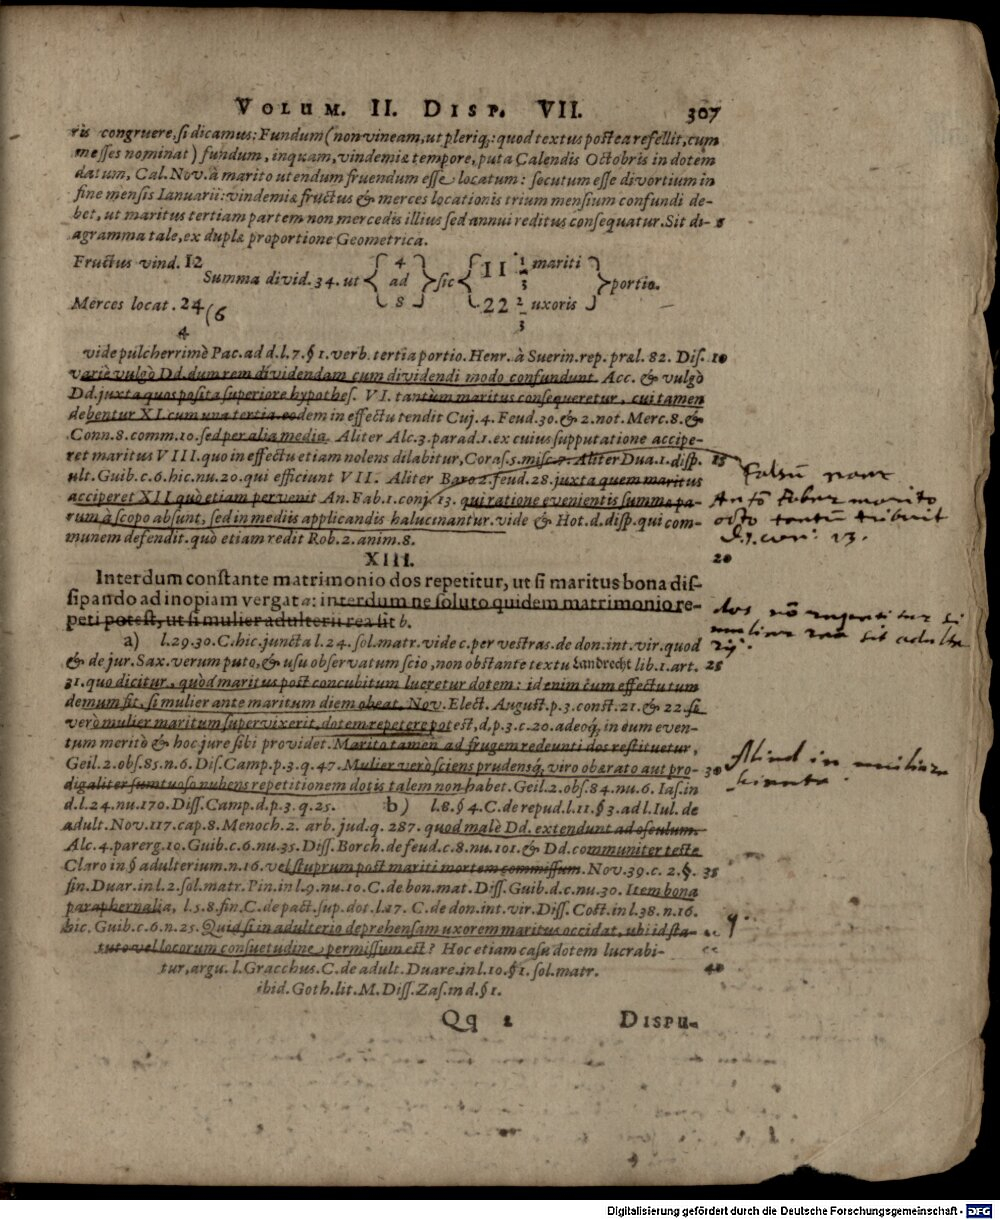 VOLUM. II. DISP. VII. 307
ris congruere, si dicamus: Fundum (non vineam, ut pleriq; quod textus postea refellit, cum
messes nominat) fundum, inquam, vindemiæ tempore, puta Calendis Octobris in dotem
datum, Cal. Nov. à marito utendum fruendum esse locatum: secutum esse divortium in
fine mensis Ianuarii: vindemiæ fructus & merces locationis trium mensium confundi de-
bet, ut maritus tertiam partem non mercedis illius sed annui reditus consequatur. Sit di- 5
agramma tale, ex dupla proportione Geometrica.
Fructus vind. 12
Summa divid. 34. ut { 4 ad 8 } sic { 11 1/3 mariti 22 2/3 uxoris } portio.
Merces locat. 24 (6
4
vide pulcherrimè Pac. ad d. l. 7. § 1. verb. tertia portio. Henr. à Suerin. rep. præl. 82. Dis. 10
variè vulgò Dd. dum rem dividendam cum dividendi modo confundunt. Acc. & vulgò
Dd. juxta quos posita superiore hypothes. VI. tantùm maritus consequeretur, cui tamen
debentur XI. cum una tertia. eodem in effectu tendit Cuj. 4. Feud. 30. & 2. not. Merc. 8. &
Conn. 8. comm. 10. sed per alia media. Aliter Alc. 3. parad. 1. ex cuius supputatione accipe-
ret maritus VIII. quo in effectu etiam nolens dilabitur, Coras. 5. misc. 7. Aliter Dua. 1. disp. 15
ult. Guib. c. 6. hic. nu. 20. qui efficiunt VII. Aliter Baro 2. feud. 28. juxta quem maritus
acciperet XII. quò etiam pervenit An. Fab. 1. conj. 13. qui ratione evenientis summa pa-
rum à scopo absunt, sed in mediis applicandis halucinantur. vide & Hot. d. disp. qui com-
munem defendit. quò etiam redit Rob. 2. anim. 8.
falsū nam
marito
octo tantū tribuit
13.
20
XIII.
Interdum constante matrimonio dos repetitur, ut si maritus bona dis-
sipando ad inopiam vergat a: interdum ne soluto quidem matrimonio re-
peti potest, ut si mulier adulterii rea sit b.
dos nō repetitur si
mulier rea sit adulte
rij.
a) l. 29. 30. C. hic. juncta l. 24. sol. matr. vide c. per vestras. de don. int. vir. quod
& de jur. Sax. verum puto, & usu observatum scio, non obstante textu Landrecht lib. 1. art. 25
31. quo dicitur, quòd maritus post concubitum lucretur dotem: id enim cum effectu tum
demum fit, si mulier ante maritum diem obeat. Nov. Elect. August. p. 3. const. 21. & 22. si
verò mulier maritum supervixerit, dotem repetere potest, d. p. 3. c. 20. adeoq, in eum even-
tum meritò & hoc jure sibi providet. Marito tamen ad frugem redeunti dos restituetur,
Geil. 2. obs. 85. n. 6. Dis. Camp. p. 3. q. 47. Mulier verò sciens prudensq, viro obærato aut pro- 30
digaliter sumtuoso nubens repetitionem dotis talem non habet. Geil. 2. obs. 84. nu. 6. Ias. in
d. l. 24. nu. 170. Diss. Camp. d. p. 3. q. 25. b) l. 8. § 4. C. de repud. l. 11. § 3. ad l. Iul. de
adult. Nov. 117. cap. 8. Menoch. 2. arb. jud. q. 287. quod malè Dd. extendunt ad osculum.
Alc. 4. parerg. 10. Guib. c. 6. nu. 35. Diss. Borch. de feud. c. 8. nu. 101. & Dd. communiter teste
Claro in § adulterium. n. 16. vel stuprum post mariti mortem commissum. Nov. 39. c. 2. §. 35
fin. Duar. in l. 2. sol. matr. Pin. in l. 9. nu. 10. C. de bon. mat. Diss. Guib. d. c. nu. 30. Item bona
paraphernalia, l. 5. 8. fin. C. de pact. sup. dot. l. 27. C. de don. int. vir. Diss. Cost. in l. 38. n. 16.
hic. Guib. c. 6. n. 25. Quid si in adulterio deprehensam uxorem maritus occidat, ubi id sta-
tuto vel locorum consuetudine permissum est? Hoc etiam casu dotem lucrabi-
tur, argu. l. Gracchus. C. de adult. Duare. in l. 10. § 1. sol. matr. 40
ibid. Goth. lit. M. Diss. Zas. in d. § 1.
Aliud in muliere
Qq 2 DISPU-
Digitalisierung gefördert durch die Deutsche Forschungsgemeinschaft - DFG